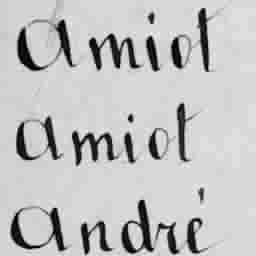 Amiot
Amiot
André